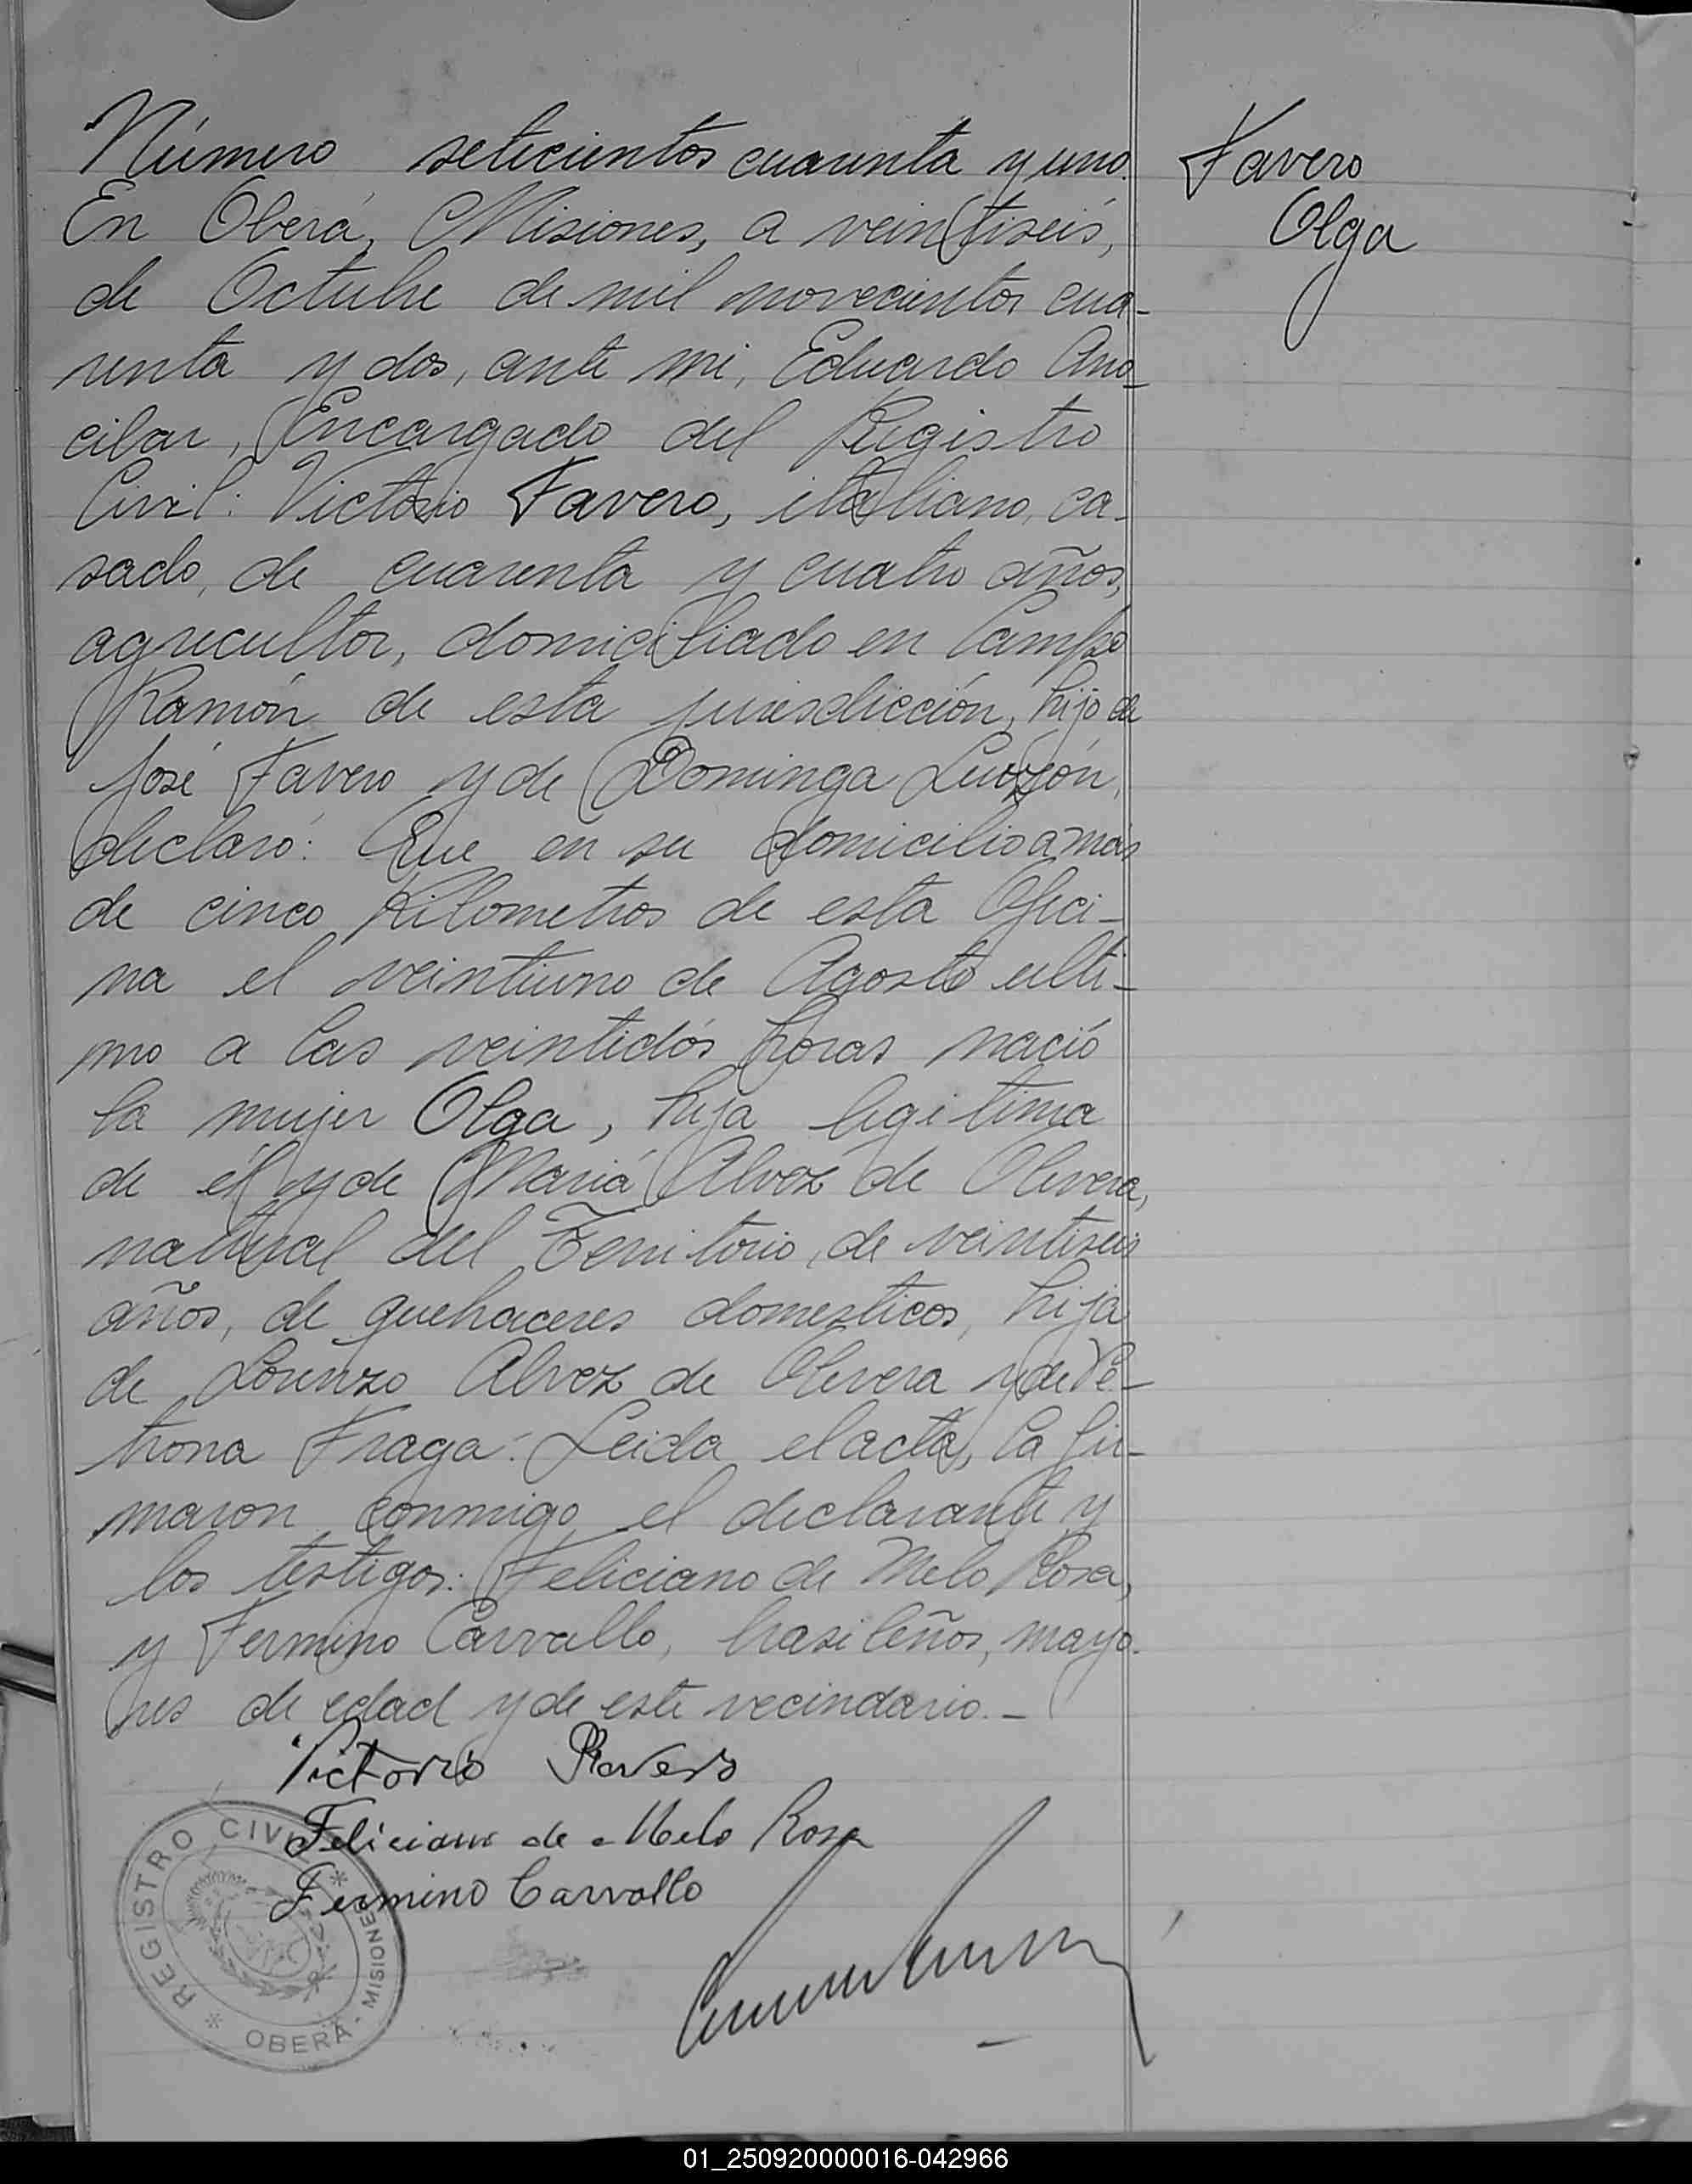 Número setecientos cuarenta y uno.
Favero
Olga
En Oberá, Misiones, a veintiseis,
de Octubre de mil novecientos cua-
renta y dos, ante mi, Eduardo Ana-
cibar, Encargado del Registro
Civil: Victorio Favero, italiano, ca-
sado, de cuarenta y cuatro años,
agricultor, domiciliado en Campo
Ramón de esta jurisdicción, hijo de
José Favero y de Dominga
declaró: Que en su domicilio a más
de cinco Kilometros de esta Ofici-
na el veintiuno de Agosto ulti-
mo a las veintidós horas nació
la mujer Olga, hija legitima
de él y de Mariá Alvez de Olivera,
natural del Territorio, de veintiseis
años, de quehaceres domesticos, hija
de Lorenzo Alvez de Olivera y de Pe-
trona Fraga.- Leida el acta, la fir-
maron conmigo el declarante y
los testigos: Feliciano de Melo Rosa,
y Fermino Carvallo, brasileños, mayo-
res de edad y de este vecindario.-
Victorio Favero
Feliciano de Melo Rosa
Fermino Carvallo
REGISTRO CIVIL
OBERÁ - MISIONES
01_250920000016-042966